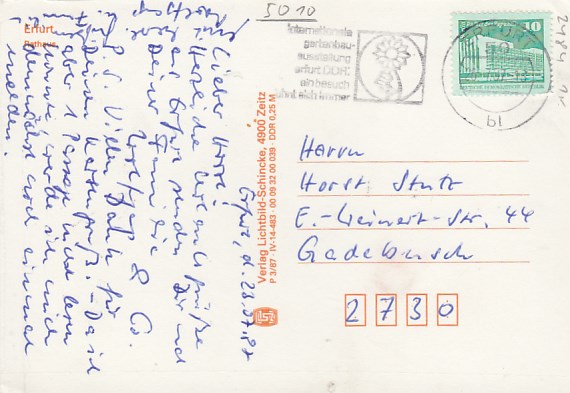 Erfurt
Rathaus
5010
internationale
gartenbau-
ausstellung
erfurt DDR
ein besuch
lohnt sich immer
10
DEUTSCHE DEMOKRATISCHE REPUBLIK
ERFURT
bl
Erfurt, d. 23.07.87
Lieber Horst!
Herzliche Urlaubsgrüße
aus Erfurt senden Dir und
Deiner Familie
& Co.
P.S. Vielen Dank für
Deinen Kartengruß. – Da ich
aber 1 Passage nicht lesen
konnte, werde ich mich
demnächst noch einmal
melden.
Verlag Lichtbild-Schincke, 4900 Zeitz
P 3/87 · IV-14-483 · 00 09 32 00 039 · DDR 0,25 M
Herrn
Horst Stutz
E.-Weinert-Str. 44
Gadebusch
2730